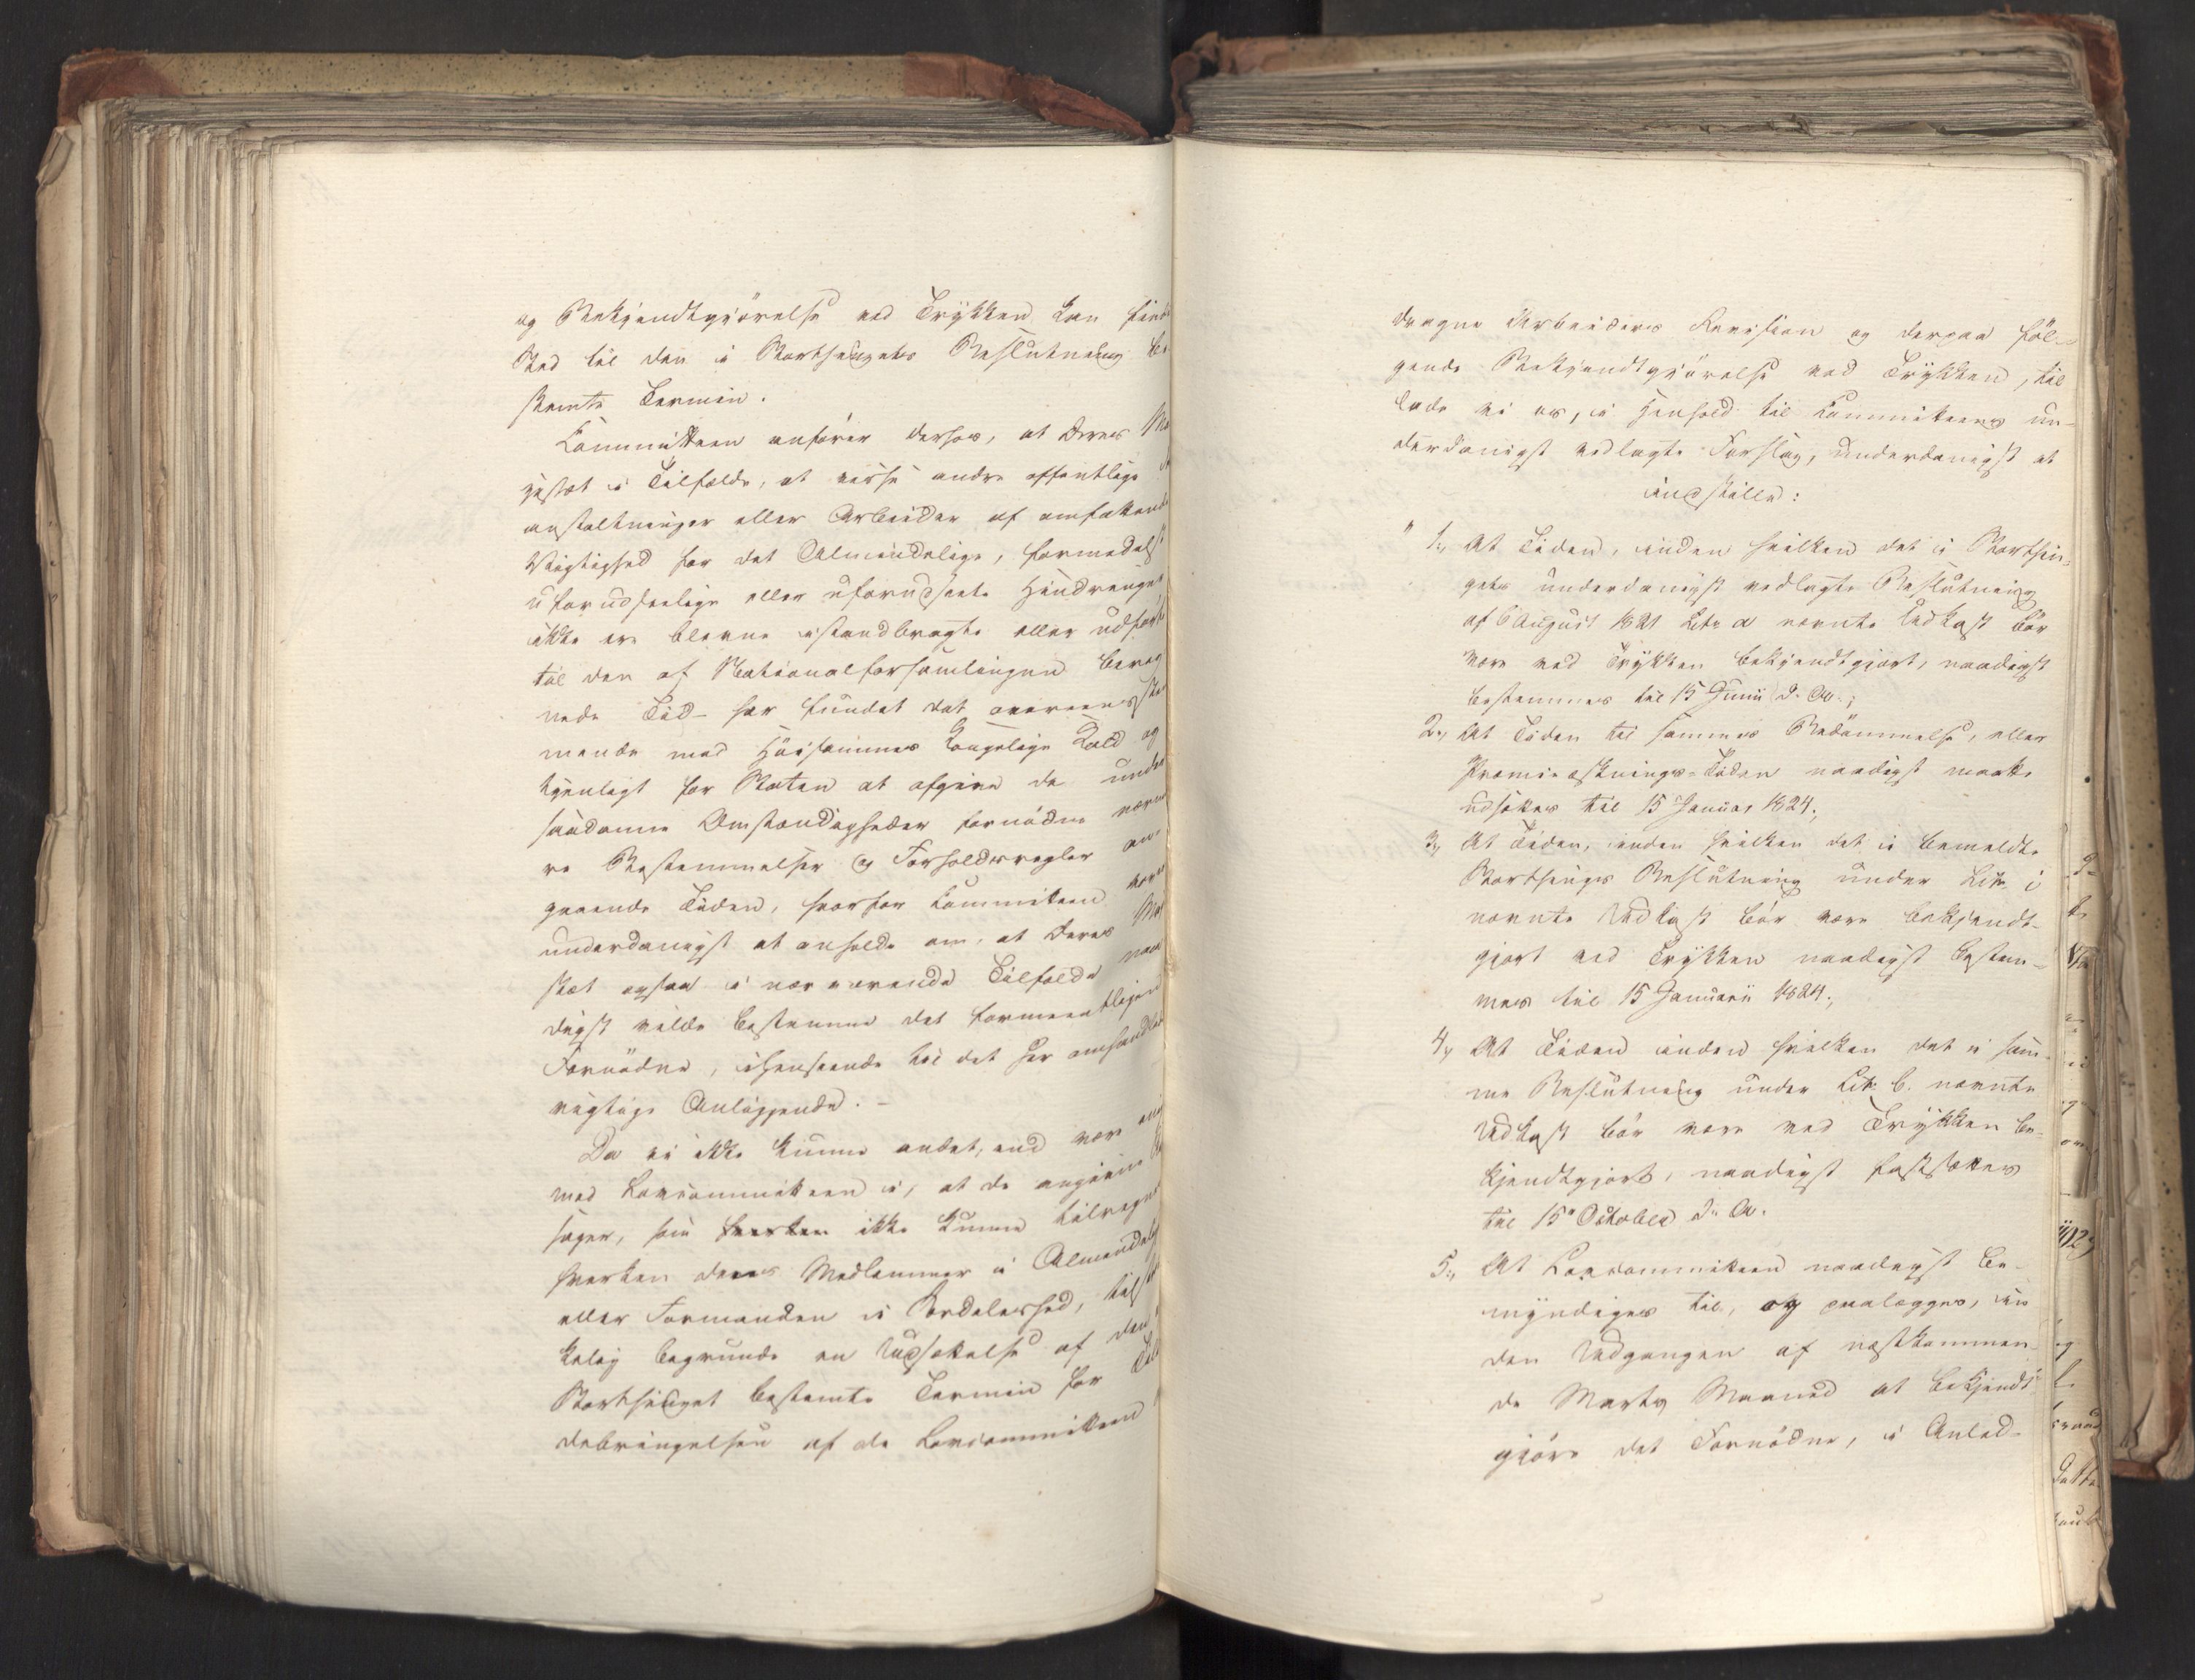 og Bekjendtgjörelse ved Trykken kan finde
Sted til den i Storthingets Beslutning be
stemte Termin.
Committeen anförer derhos, at Deres Ma
jestæt i Tilfælde, at visse andre offentlige
anstaltninger eller Arbeider af omfattende
Vigtighed for det Almindelige, formedelst
uforudseelige eller uforudseete Hindringer
ikke ere blevne istandbragte eller udförte
til den af Nationalforsamlingen bereg
nede Tid har fundet det overeensstem
mende med Höistsammes Kongelige Kald og
tjenligt for Staten at afgive de under
saadanne Omstændigheder fornödne nærme
re Bestemmelser og Forholdsregler an-
gaaende Tiden, hvorfor Committeen
underdanigst at anholde om, at Deres Maj
stæt ogsaa i nærværende Tilfælde naa
digst vilde bestemme det formeentligen
Fornödne, ihenseende til det her omhandlede
vigtige Anliggende. -
Da vi ikke kunne andet, end være enig
med Lovcommitteen i, at de angivne
sager, som ikke kunne tilregnes
hverken dens Medlemmer i Almindelig
eller Formanden i Særdeleshed, tilstræk
kelig begrunde en Udsættelse af den
Storthinget bestemte Termin for
debringelsen af de Lovcommitteen
dragne Arbeiders Revision og derpaa föl-
gende Bekjendtgjörelse ved Trykken, til
lade vi os, i Henhold til Committeens un-
derdanigst vedlagte Forslag, underdanigst at
indstille:
" 1., At Tiden, inden hvilken det i Storthin-
gets underdanigst vedlagte Beslutning
af 6 August 1821 Litr a nævnte Udkast bör
være ved Trykken bekjendtgjort, naadigst
bestemmes til 15 Junii d. A.;
2., At Tiden til sammes Bedömmelse, eller
Præmieæsknings-Tiden naadigst maatte
udsættes til 15 Januar 1824.;
3., At Tiden, inden hvilken det i bemeldte
Storthings Beslutning under Litr i
nævnte Udkast bör være bekjendt-
gjort ved Trykken naadigst bestem-
mes til 15 Januarii 1824.;
4., At Tiden inden hvilken det i sam-
me Beslutning under Litr b. nævnte
Udkast bör være ved Trykken be-
kjendtgjort, naadigst fastsættes
til 15 October d. A.
5., At Lovcommitteen naadigst be-
myndiges til, og paalægges, in
den Udgangen af næstkommen-
de Marts Maaned at bekjendt-
gjöre det Fornödne, i Anled-